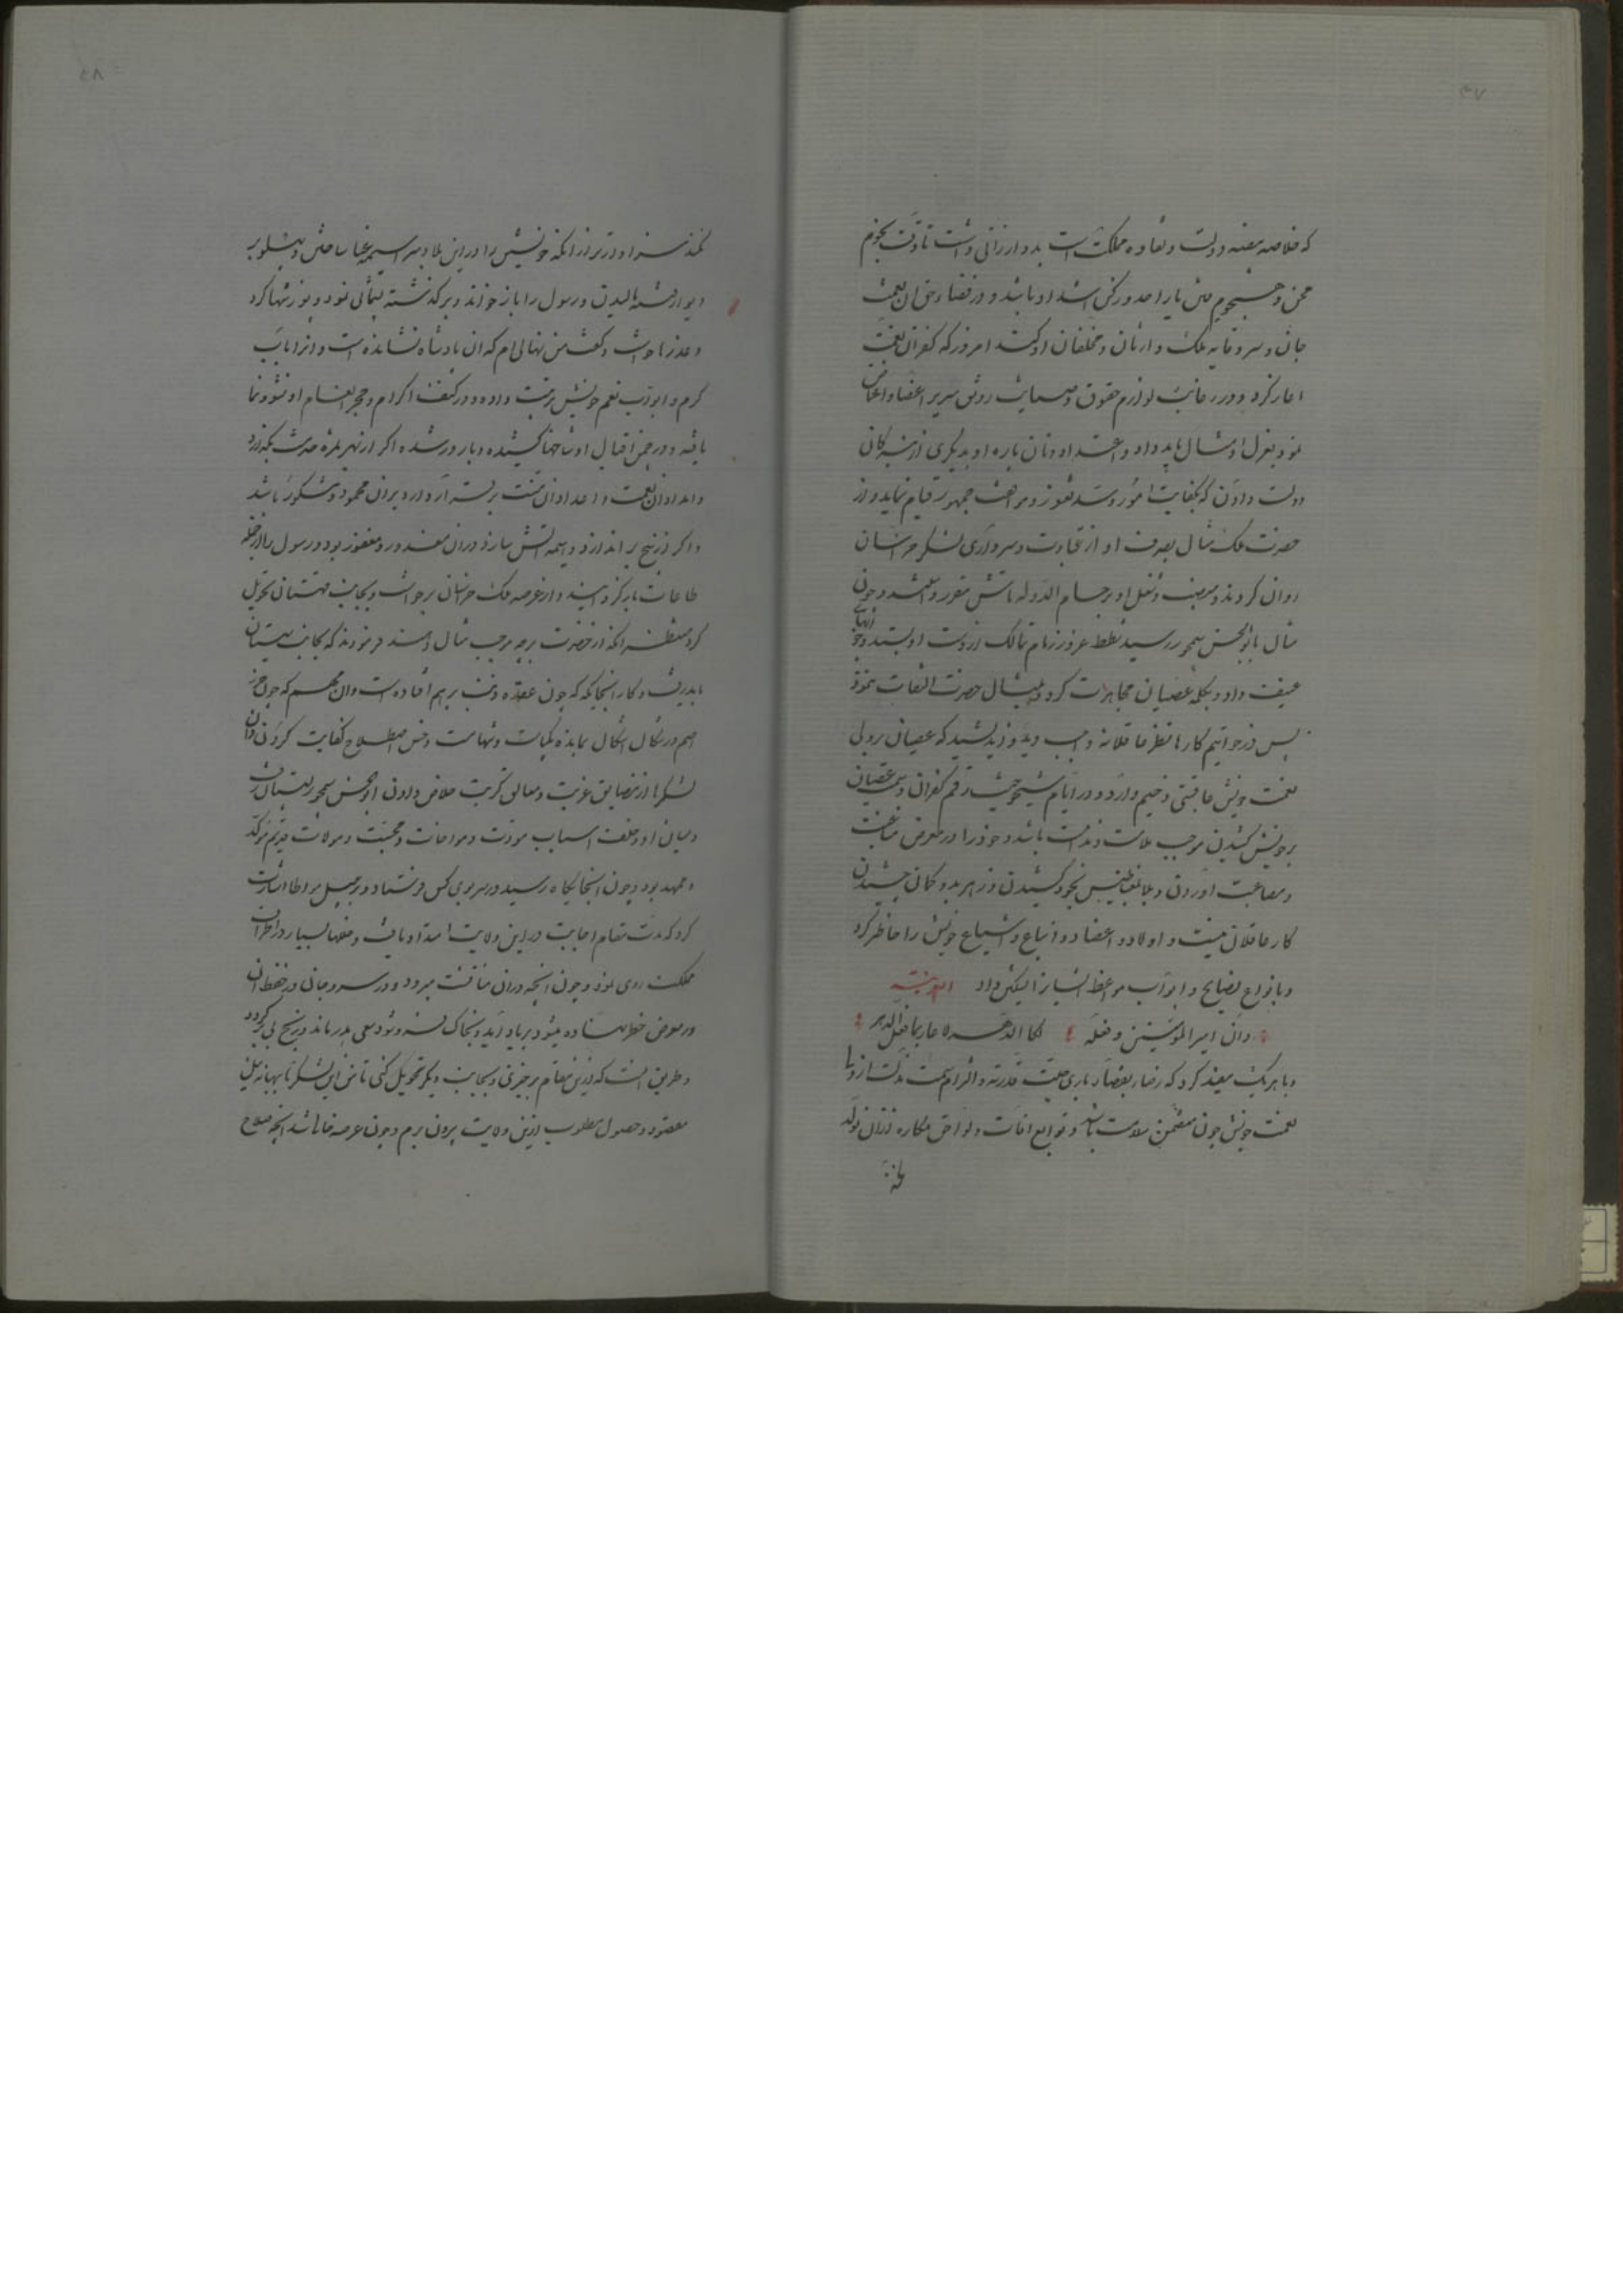 ۴۷
که خلاصه بیضه دولت و نقاوه مملکت است بدو ارزانی داشت تا وقت نجوم
محن و هجوم فتن یار اعد و رکن اشد او باشد و در قضاء حق آن نعمت
جان و سر وقایه ملک وارثان و مخلفان او کند امروز که کفران نعمت
اغاز کرد و در رعایت لوازم حقوق
نمود بعزل او مثال باید داد و اعتداد و نان پاره او بدیگری از بندگان
دولت دادن که بکفایت امور و سد ثغور و مصالح جمهور قیام نماید و از
حضرت ملک مثال بصرف او از قیادت و سرداری لشکر خراسان
روان کردند و منصب و شغل او بر حسام الدوله تاش مقرر داشتند و چون
مثال بابوالحسن سیمجور رسید
عنیف داد و بکلمه عصیان مجاهرت کرد و بمثال حضرت التفات ننمود
پس در خواتیم کارها نظر عاقلانه واجب دید و اندیشید که عصیان در ولی
نعمت خویش عاقبتی وخیم دارد و در ایام شیخوخیت رقم کفران و سمت عصیان
بر خویش کشیدن موجب ملامت و ندامت باشد و خود را در معرض
و مصاعب اوردن و بلا بمغناطیس بخود کشیدن و زهر بدو کمانی چشیدن
کار عاقلان نیست و اولاد و اعضاد و اتباع و اشیاع خویش را حاضر کرد
و بانواع نصایح و ابواب مواعظ ایشانرا تسکین داد العربیه
وان امیر المومنین و فعله لکا الدهر لا عار بما فعل الدهر
و با هریک معین کرد که رضا بقضاء باری جلت قدرته و التزام سمت مذلت از ولی
نعمت خویش چون متضمن سلامت باشد و توابع افات و لواحق مکاره از ان تولد
نکند

۴۸
نکند سزاوارتر از انکه خویش را در این بلا و سراسیمه
و بر گذشته پشیمانی نمود و پوزشها کرد
و عذرها خواست و گفت من نهالی ام که ان پادشاه نشانده است و انرا باب
کرم و ابواب نعم خویش تربیت داده و در کنف اکرام و حجر انعام او نشو و نما
یافته و در چمن اقبال او شاخها کشیده و بارور شده اگر از بهر ثمره
و امداد ان نعمت و اعداد ان منت برسته آرد و در بران محمود و مشکور باشد
و اگر از بیخ بر اندازد و هیمه اتش سازد در ان معذور و مغفور بود و رسول را
طاعات باز گردانید و از عرصه ملک خراسان برخاست و بجانب قهستان تحویل
کرد منتظر انکه از حضرت بر چه موجب مثال دهند فرمودند که بجانب سیستان
باید رفت و کار انجایگه که چون عقده ذنب بر هم افتاده است و ان مهم که چون
اصم در شکال اشکال بمانده بکیاست و شهامت و حسن اصطلاح کفایت کردن و ان
لشکرها از مضایق غربت و مضایق کربت خلاص دادن ابوالحسن سیمجور بسیستان رفت
و میان او و خلف اسباب مودت و مواخات و محبت و موالات قدیم موکد
و ممهد بود و چون انجایگاه رسید در سر بوی کس فرستاد و بر سبیل مواطا اشارت
کرد که مدت مقام اجانب در این ولایت امتداد یافت و خللها بسیار در اطراف
مملکت روی نمود و چون انچه در ان مناقشت میرود و در سر و جان و در حفظ ان
در معرض خطر نهاده میشود بر باد آید و بخاک نشسته شود سعی هدر ماند و رنج بی گردد
و طریق انست که ازین مقام برخیزی و بجانب دیگر تحویل کنی تا من این لشکر تا ببهانه نیل
مقصود و حصول مطلوب ازین ولایت بیرون برم و چون عرصه خالی شد انچه صلاح